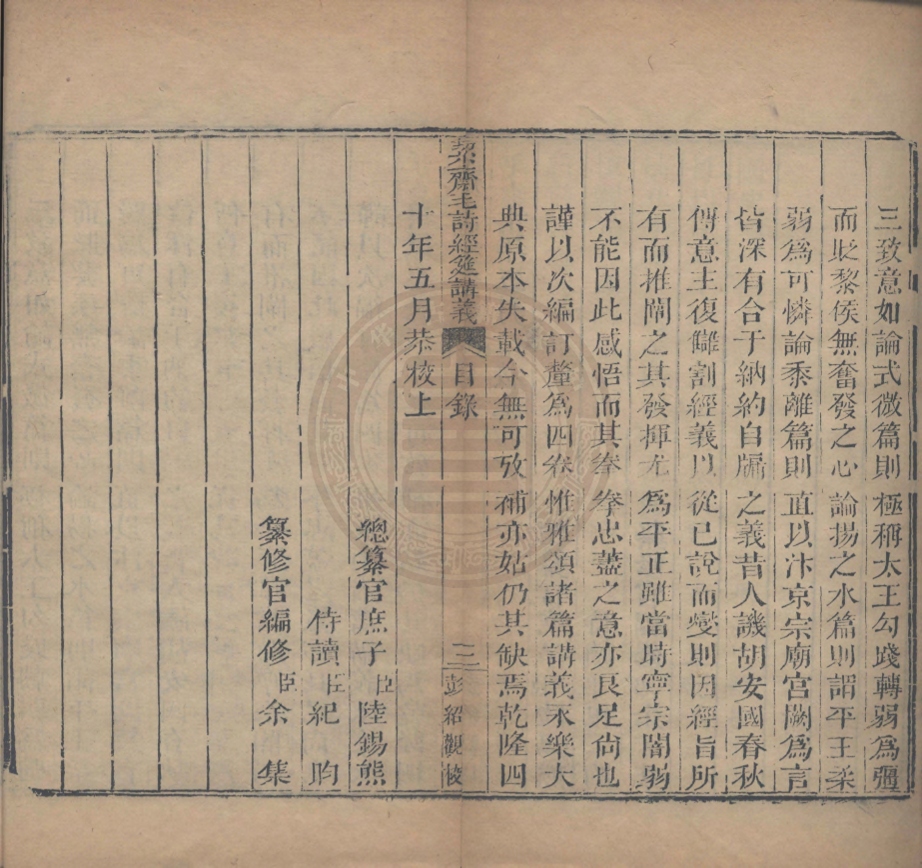 三致意如論式微篇則極稱太王勾踐轉弱爲彊
而貶黎侯無奮發之心論揚之水篇則謂平王柔
弱爲可憐論黍離篇則直以汴京宗廟宫闕爲言
皆深有合于納約自牖之義昔人譏胡安國春秋
傳意主復讎割經義以從已說而燮則因經旨所
有而推闡之其發揮尤爲平正雖當時寧宗闇弱
不能因此感悟而其拳拳忠藎之意亦良足尙也
謹以次編訂釐爲四卷惟雅頌諸篇講義永樂大
典原本失載今無可攷補亦姑仍其缺焉乾隆四
十年五月恭校上
絜齋毛詩經筵講義 目錄 三 彭紹觀校
總纂官庶子臣陸錫熊
侍讀臣紀昀
纂修官編修臣余集